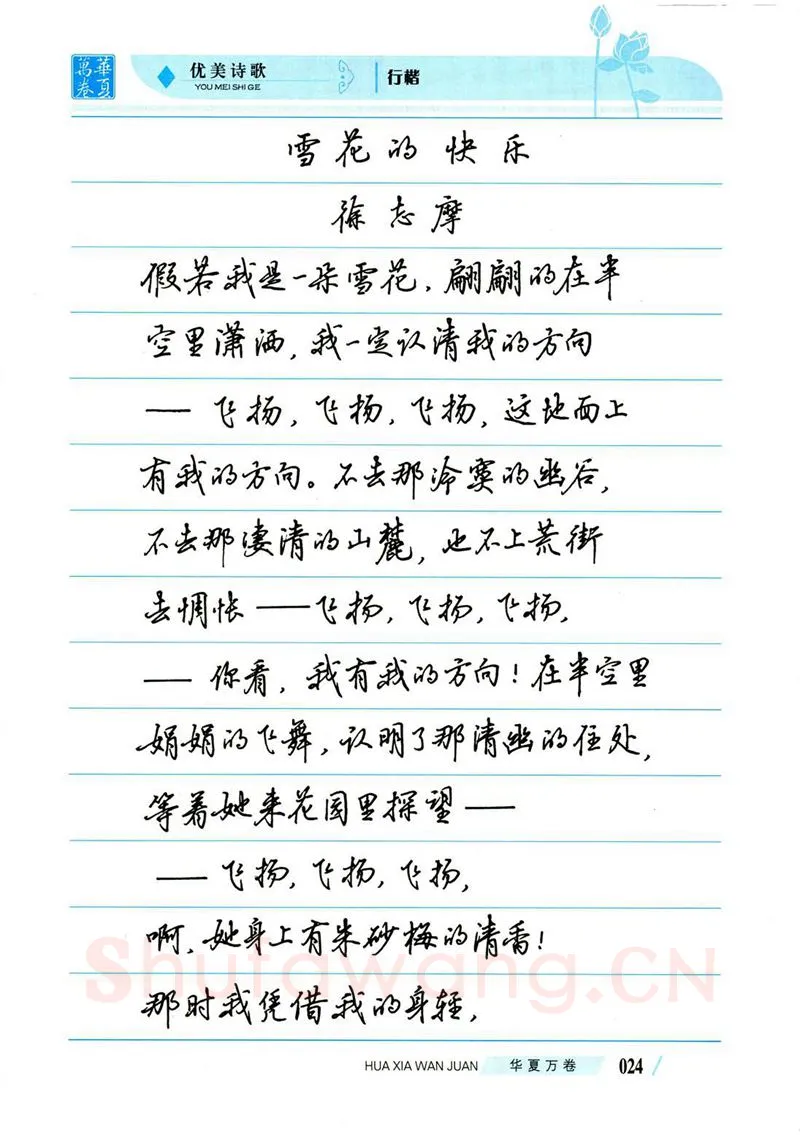 華夏萬卷
优美诗歌
YOU MEI SHI GE
行楷
雪花的快乐
徐志摩
假若我是一朵雪花,翩翩的在半
空里潇洒,我一定认清我的方向
—— 飞扬,飞扬,飞扬,这地面上
有我的方向。不去那冷寞的幽谷,
不去那凄清的山麓,也不上荒街
去惆怅——飞扬,飞扬,飞扬,
—— 你看,我有我的方向!在半空里
娟娟的飞舞,认明了那清幽的住处,
等着她来花园里探望——
—— 飞扬,飞扬,飞扬,
啊,她身上有朱砂梅的清香!
那时我凭借我的身轻,
Shufawang.CN
HUA XIA WAN JUAN 华夏万卷 024